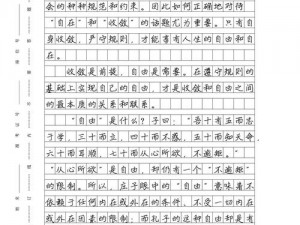 会的种种规范和约束。因此如何正确地对待
“自在”和“收敛”的话题尤为重要。只有自
身收敛，严守规则，才能享有人生的自由和自
在。
收敛是前提，自由是需要。在遵守规则的
基础上实现自己的自由，才是收敛和自由之间
的最本质的关系和联系。
“自由”是什么？子曰：“吾十有五而志
于学，三十而立，四十而不惑，五十而知天命，
六十而耳顺，七十而从心所欲，不逾矩。”
“从心所欲”是自由，却仍有一个“不逾矩”
的限制。所以，庄子眼中的“自由”意味着不
依赖于任何内在或外在的条件，不受一切内在
或外在因素的限制；而孔子的这种自由却是有